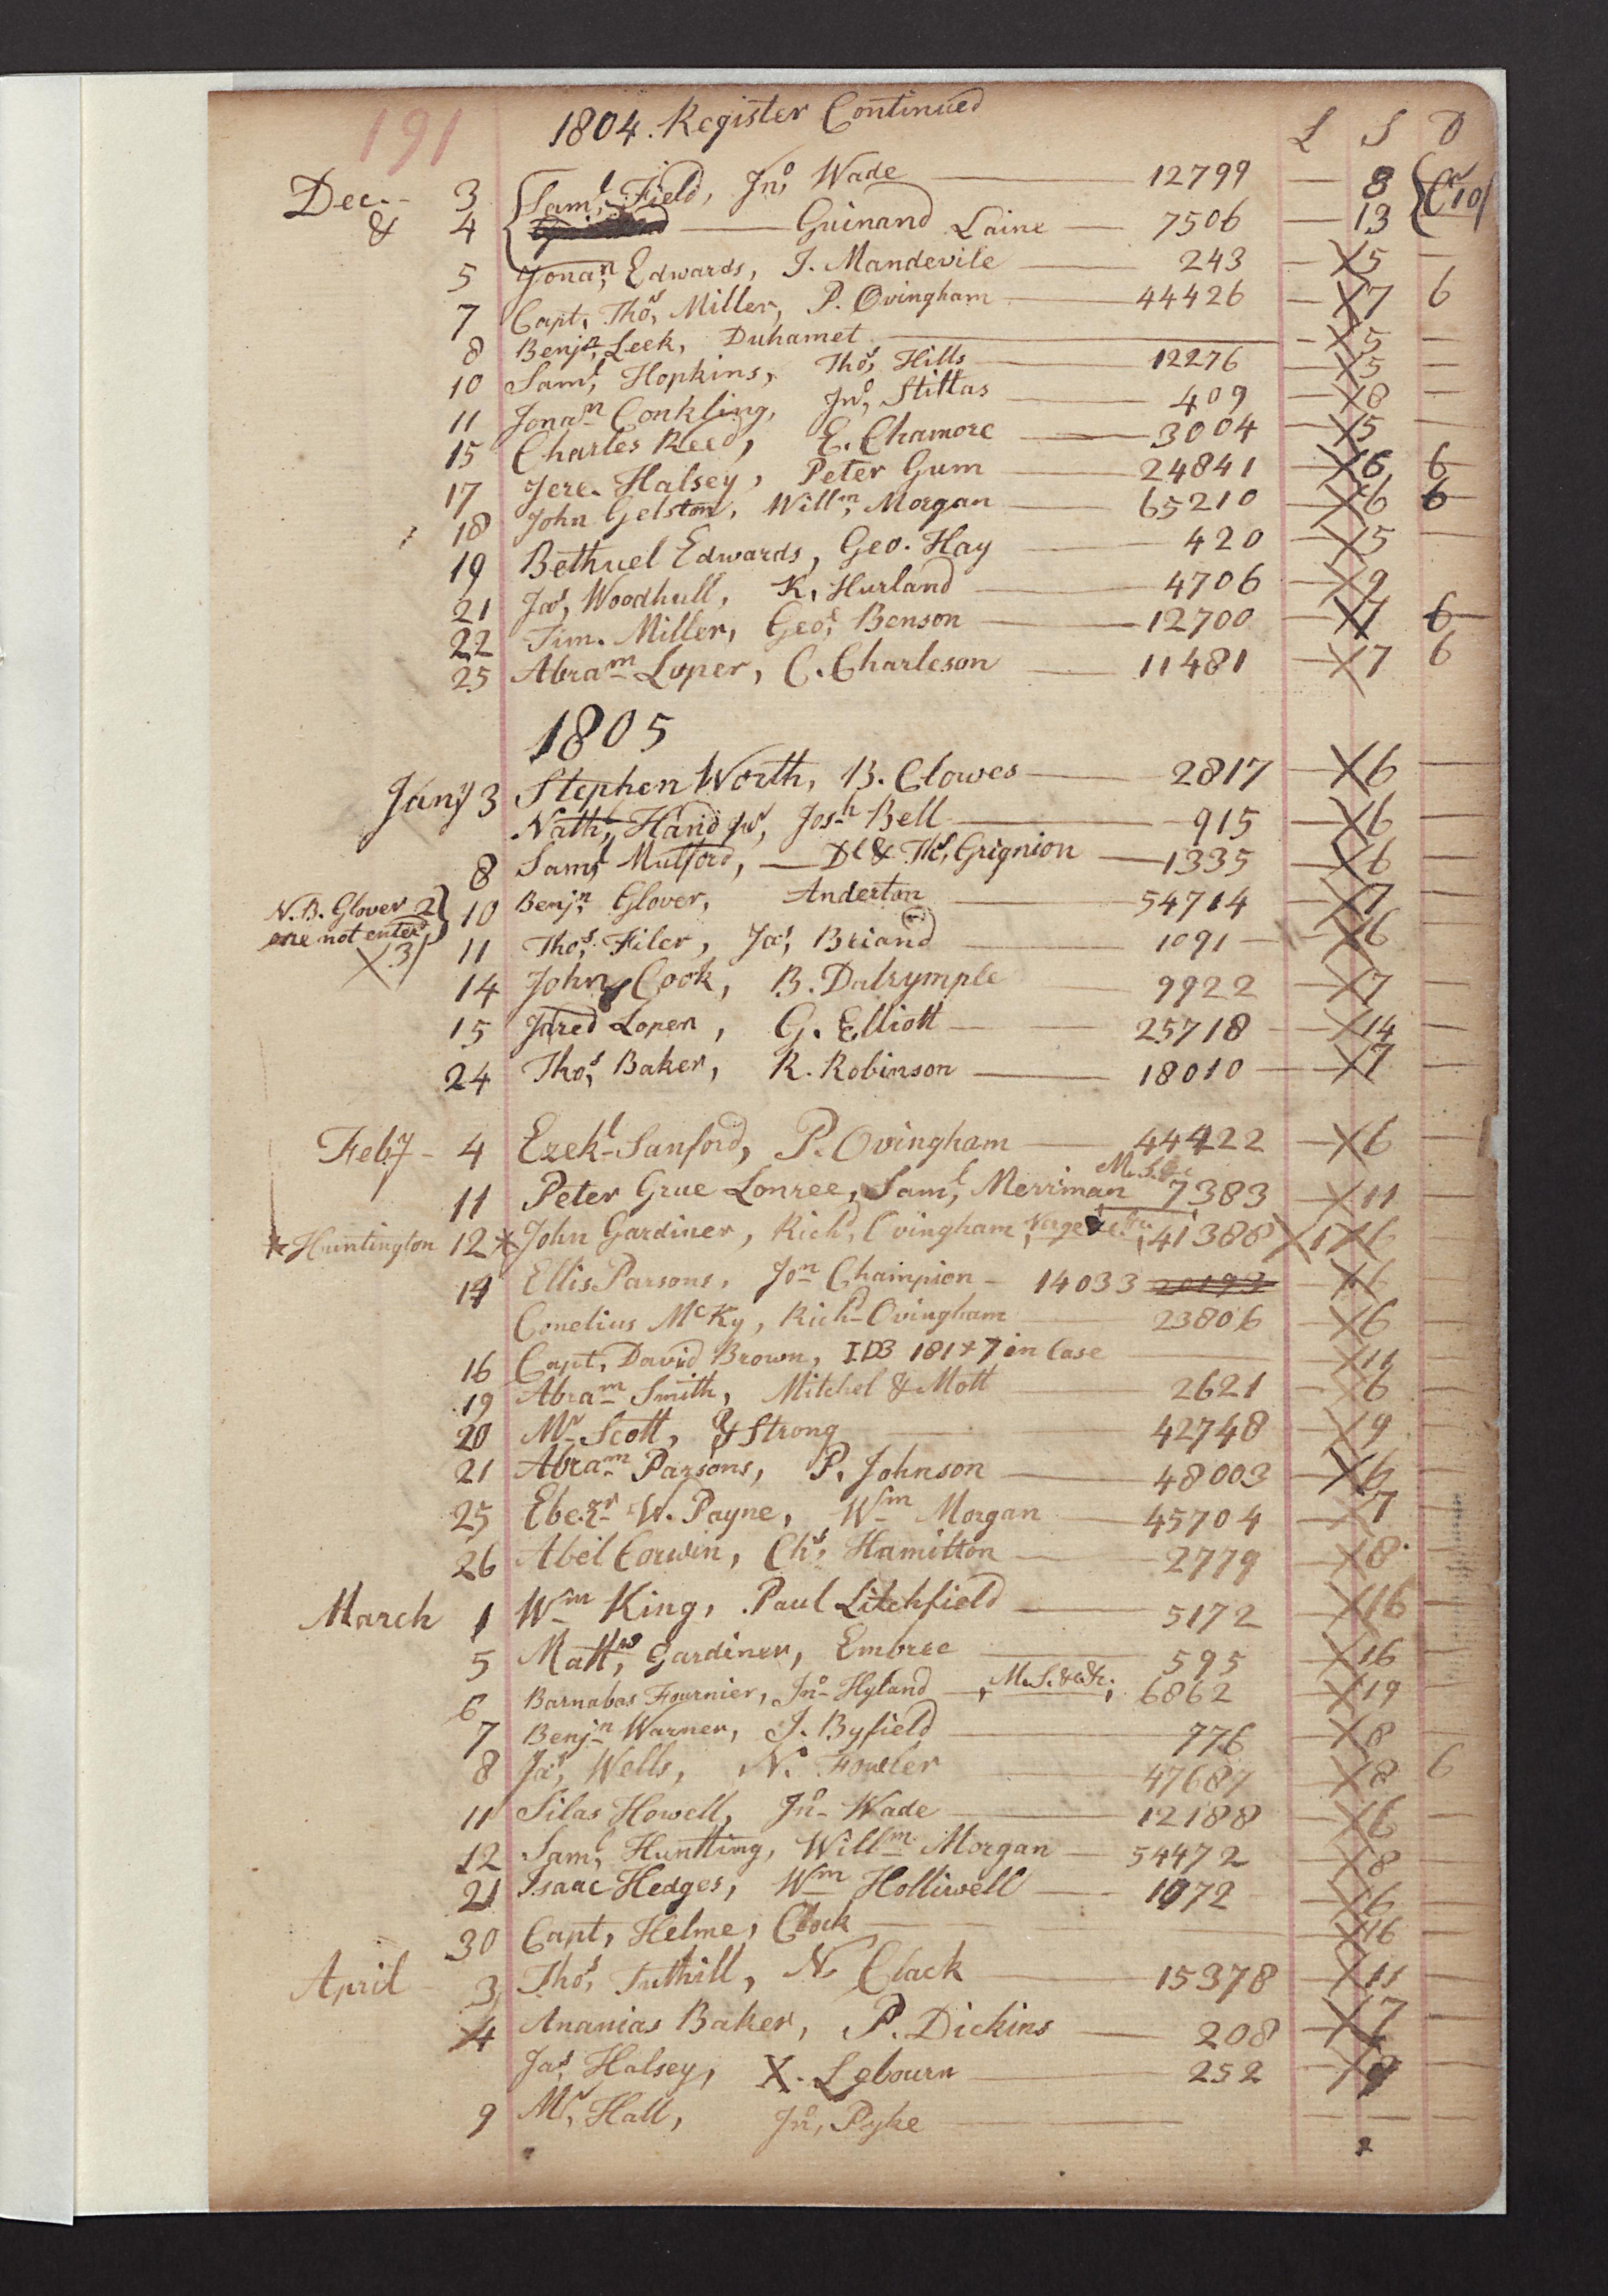 191 1804. Register Continued L S D
Dec. - 3 Saml, Field, Jno, Wade 12799 — 8 Cr 10/
& 4 Guinand Laine 7506 — 13
5 Jonan, Edwards, J. Mandevile 243 — X5 —
7 Capt, Thos, Miller, P. Ovingham 44426 — X7 6
8 Benjn, Leek, Duhamet — X5 —
10 Saml, Hopkins, Thos, Hills 12276 — X5 —
11 Jonan Conkling, Jno, Stittas 409 — X8 —
15 Charles Reed, E. Chamore 3004 — X5 —
17 Jere. Halsey, Peter Gum 24841 — X6 6
18 John Gelston, Willm, Morgan 65210 — X6 6
19 Bethuel Edwards, Geo. Hay 420 — X5 —
21 Jas, Woodhull, K, Hurland 4706 — X9 —
22 Tim. Miller, Geoe, Benson 12700 — X7 6
25 Abram Loper, C. Charleson 11481 — X7 6
1805
Jany 3 Stephen Worth, B. Clowes 2817 — X6 —
Nathl, Hand Jur, Josh Bell 915 — X6 —
8 Saml, Mulford, — Dl & Thos, Grignion 1335 — X6 —
N.B. Glover 2 } 10 Benjn, Glover, Anderton 54714 — X7 —
one not enterd
X 3/ 11 Thos, Filer, Jas, Briand 1091 — X6 —
14 John Cook, B. Dalrymple 9922 — X7 —
15 Jared Loper, G. Elliott 25718 — X14 —
24 Thos, Baker, R. Robinson 18010 — X7 —
Feby - 4 Ezekl Sanford, P. Ovingham 44422 — X6 —
11 Peter Grue Lonree, Saml, Merriman M.S. 7383 — X11 —
* Huntington 12 * John Gardiner, Richd, Ovingham 41388 X1 X6 —
14 Ellis Parsons, Jon Champion - 14033 20193 — X6 —
Conelius McKy, Richd Ovingham 23806 — X6 —
16 Capt, David Brown, IDB 181 & 7 in Case — X11 —
19 Abram Smith, Mitchel & Mott 2621 — X6 —
20 Mr Scott, Strong 42748 — X9 —
21 Abram Parsons, P. Johnson 48003 — X6 —
25 Ebezr W. Payne, Wm Morgan 45704 — X7 —
26 Abel Corwin, Chs, Hamilton 2779 — X8 —
March 1 Wm King, Paul Litchfield 5172 — X16 —
5 Mattw, Gardiner, Embree 595 — X16 —
6 Barnabas Fournier, Jno Hyland M.S. 6862 — X19 —
7 Benjn Warner, J. Byfield 776 — X8 —
8 Jas, Wells, N. Fowler 47687 — X8 6
11 Silas Howell, Jno Wade 12188 — X6 —
12 Saml, Huntting, Willm Morgan 54472 — X8 —
21 Isaac Hedges, Wm Holliwell 1072 — X6 —
30 Capt, Helme, Clock — X16 —
April 3 Thos, Tuthill, N Clack 15378 — X11 —
4 Ananias Baker, P. Dickins 208 — X7 —
Jas, Halsey, X. Lebourn 252 — X —
9 Mr, Hall, Jno, Pyke — — —